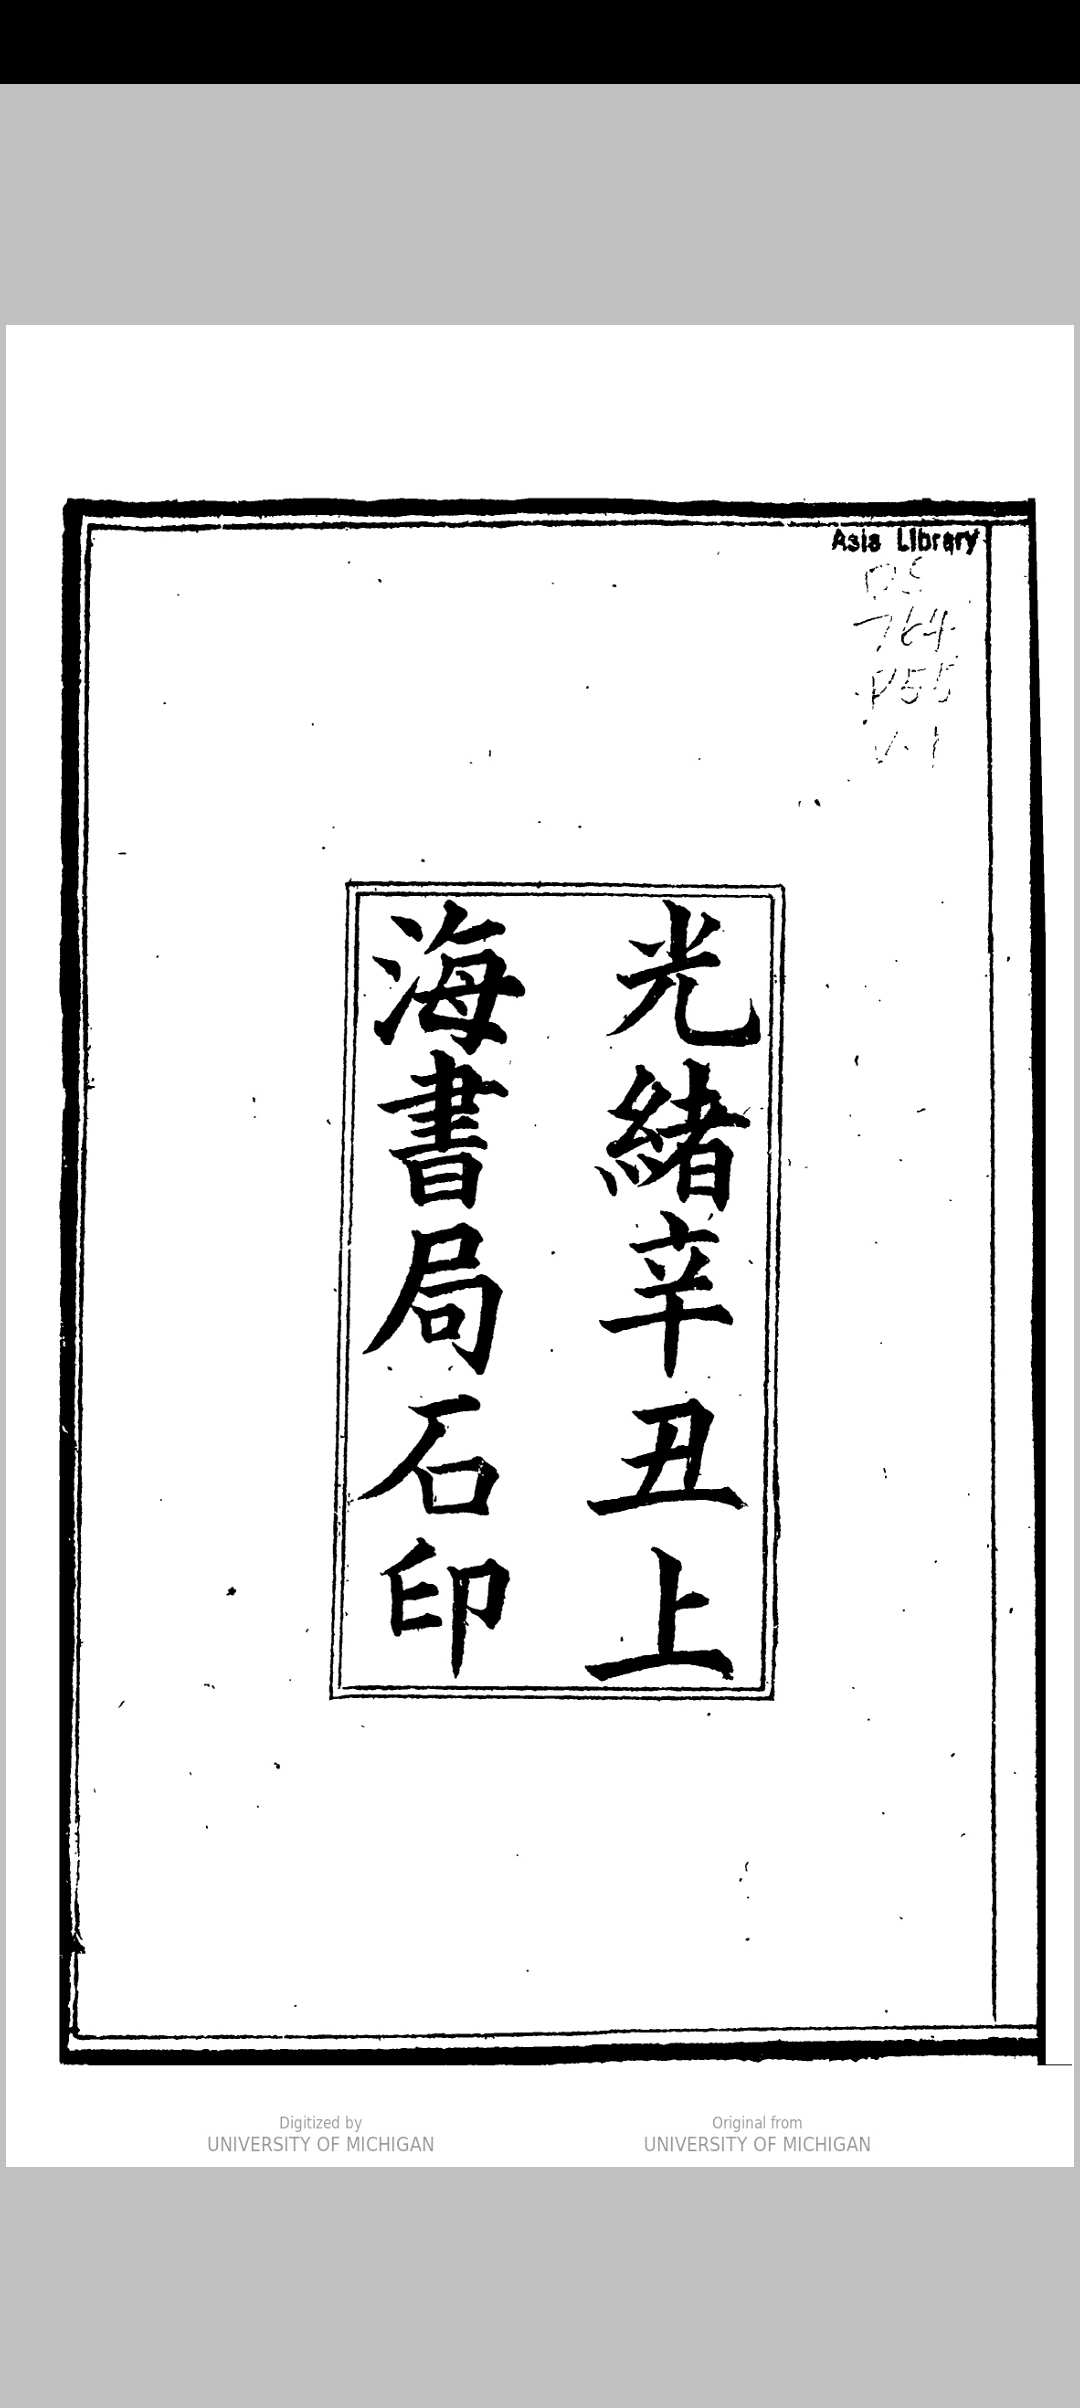 Asia Library
DS
764
P55
v.1
光緒辛丑上
海書局石印
Digitized by
UNIVERSITY OF MICHIGAN
Original from
UNIVERSITY OF MICHIGAN